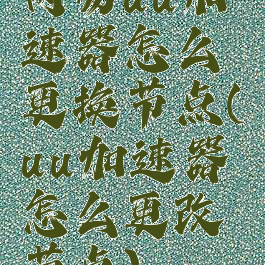 网易uu加
速器怎么
更换节点(
uu加速器
怎么更改
节点)